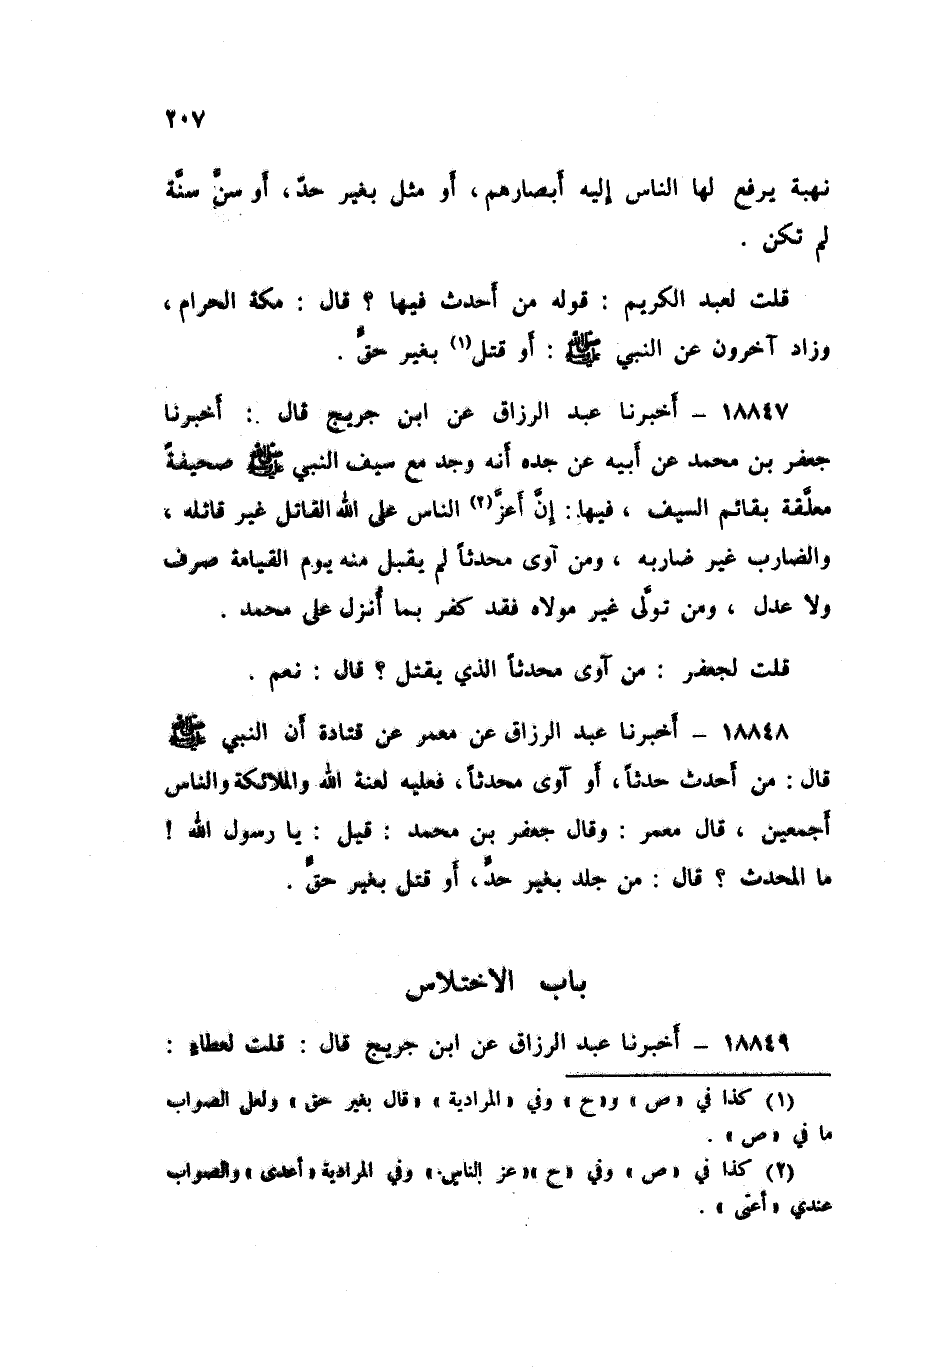 ٢٠٧
نهبة يرفع لها الناس إليه أبصارهم، أو مثل بغير حدّ، أو سنَّ سنَّة
لم تكن .
قلت لعبد الكريم : قوله من أحدث فيها ؟ قال : مكة الحرام ،
وزاد آخرون عن النبي ﷺ : أو قتل(١) بغير حقٍّ .
١٨٨٤٧ – أخبرنا عبد الرزاق عن ابن جريج قال : أخبرنا
جعفر بن محمد عن أبيه عن جده أنه وجد مع سيف النبي ﷺ صحيفةً
معلَّقة بقائم السيف ، فيها : إنَّ أعزَّ(٢) الناس على الله القاتل غير قاتله ،
والضارب غير ضاربه ، ومن آوى محدثاً لم يقبل منه يوم القيامة صرف
ولا عدل ، ومن تولَّى غير مولاه فقد كفر بما أُنزل على محمد .
قلت لجعفر : من آوى محدثاً الذي يقتل ؟ قال : نعم .
١٨٨٤٨ – أخبرنا عبد الرزاق عن معمر عن قتادة أن النبي ﷺ
قال : من أحدث حدثاً، أو آوى محدثاً، فعليه لعنة الله والملائكة والناس
أجمعين ، قال معمر : وقال جعفر بن محمد : قيل : يا رسول الله !
ما المحدث ؟ قال : من جلد بغير حدٍّ، أو قتل بغير حقٍّ .
باب الاختلاس
١٨٨٤٩ – أخبرنا عبد الرزاق عن ابن جريج قال : قلت لعطاءٍ :
(١) كذا في «ص» و«ح» وفي «المرادية» «قال بغير حق» ولعل الصواب
ما في «ص» .
(٢) كذا في «ص» وفي «ح» «عز الناس» وفي المرادية «أعدى» والصواب
عندي «أعتى» .